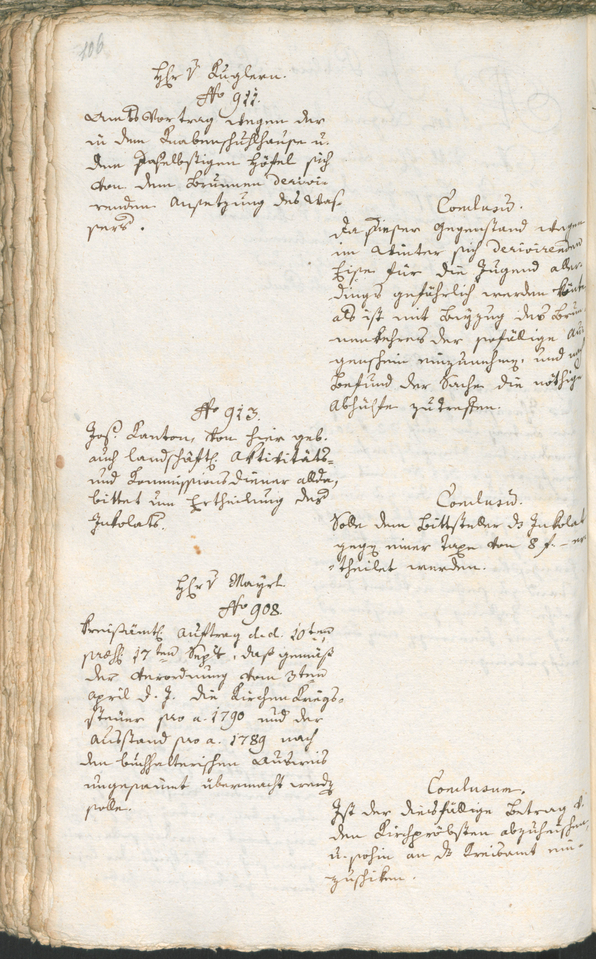 106
Hhr v Kuglern.
No 911.
Amts Vortrag wegen der
in dem Knabenschuhlhause u.
dem daselbstigen Höfel sich
von dem Brunnen derivi-
renden Ansetzung des Was-
sers.
Conclusum.
Da dieser Gegenstand wegen
im Winter sich derivirenden
Eises für die Jugend aller-
dings gefährlich werden könte
als ist mit Beyzug des Brun-
nenkehrers der gefällige Au-
genschein einzunehmen, und nach
Befund der Sache die nöthige
Abhülfe zu treffen.
No 913.
Jos. Kanton, von hier geb.
auch landschäftl. Aktivitäts-
und Kommissionsdiener allda,
bittet um Ertheilung des
Inkolats.
Conclusum.
Solle dem Bittsteller ds Inkolat
gegen einer Taxe von 8 f. – er-
theilet werden.
Hhr v Mayrl.
No 908.
Kreisämtl. Auftrag d.d. 10ten
praes. 17ten Sept, daß gemäß
der Verordnung vom 3ten
April d. J. die Kirchen Kriegs-
steuer pro a. 1790 und der
Ausstand pro a. 1789 nach
dem buchhalterischen Ausweis
ungesäumt übermacht werden
solle.
Conclusum.
Ist der diesfällige Betrag v.
den Kirchpröbsten abzuheischen,
u. sohin an ds Kreisamt ein-
zuschiken.